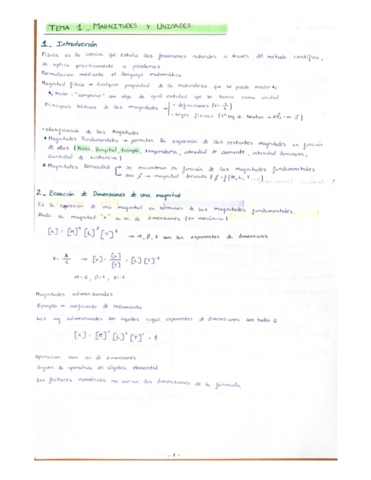 TEMA 1 MAGNITUDES Y UNIDADES
1_ Introducción
Física es la ciencia que estudia los fenómenos naturales a través del método científico,
se aplica prácticamente a problemas
Formulación mediante el lenguaje matemático
Magnitud física = cualquier propiedad de la naturaleza que se puede medir
Medir = "comparar" con algo de igual entidad que se toma como unidad
Principios básicos de las magnitudes → definiciones
→ leyes físicas
Clasificación de las magnitudes
Magnitudes Fundamentales → permiten la expresión de las restantes magnitudes en función
de ellas (Masa, longitud, tiempo, temperatura, intensidad de corriente, intensidad luminosa,
cantidad de sustancia)
Magnitudes Derivadas se encuentran en función de las magnitudes fundamentales
2_ Ecuación de Dimensiones de una magnitud
Es la expresión de una magnitud en términos de las magnitudes fundamentales.
Dada la magnitud "x" su ec. de dimensiones (en mecánica)
[x] = [M]^α [L]^β [T]^γ → α, β, γ son los exponentes de dimensiones
Magnitudes adimensionales
Ejemplo = coeficiente de rozamiento
Las mg adimensionales son aquellas cuyos exponentes de dimensiones son todos 0
[x] = [M]° [L]° [T]° = 1
Operación con ec. de dimensiones
Siguen la operativa del álgebra elemental
Los factores numéricos no varían las dimensiones de la fórmula.
- 1 -